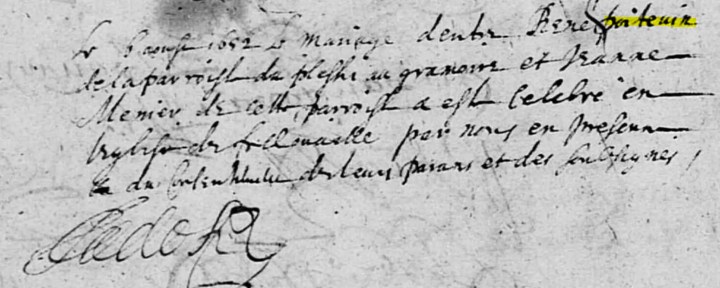 Le 6 aoust 1652 le mariage d'entre Rene poitevin
de la parroisse du plessis au gramoire et Jeanne
Menier de cette parroisse a este Celebré en
leglise de par nous en presence
et du Consentement de leurs parans et des soubsignés